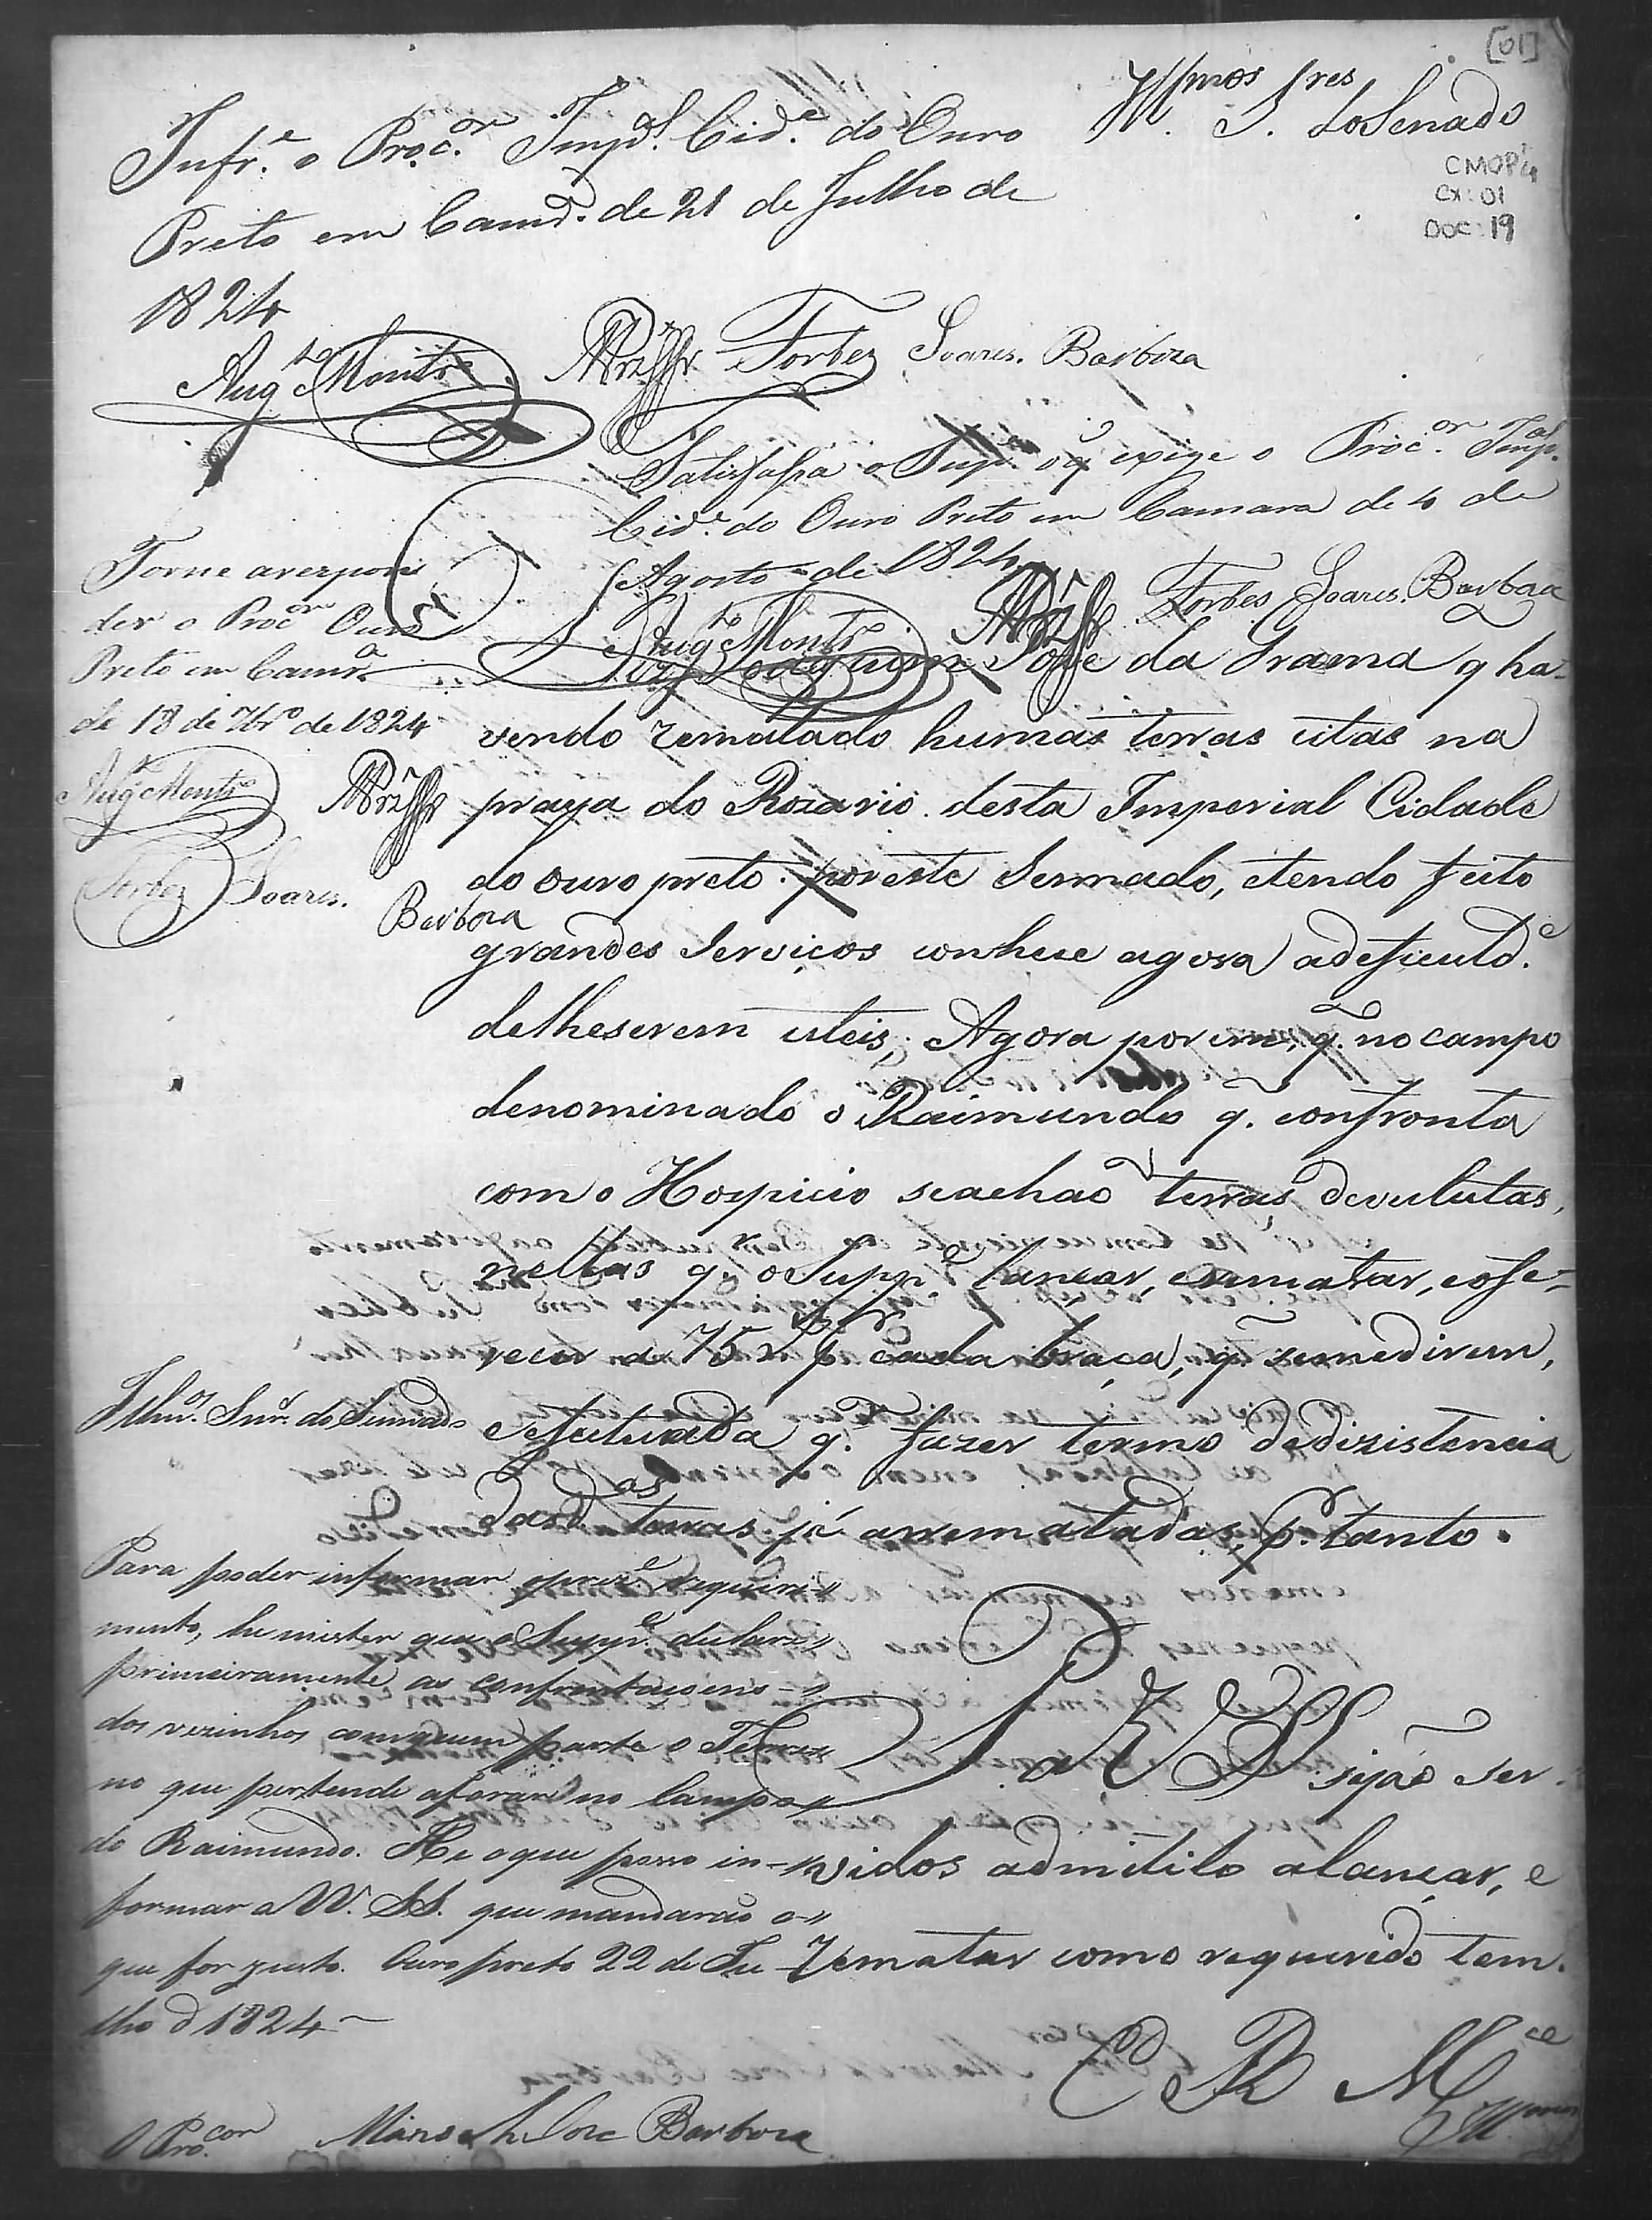 [01]
Ill.mos Sres
S. do Senado
CMOP
CX: 01
DOC: 19
Infr.e o Proc.or Imp.l Cid.e do Ouro
Preto em Cam.a de 21 de Julho de
1824
Aug.to Montr.o Forbes Soares. Barboza
Satisfassa o Sup.e o q exige o Proc.or Imp.al
Cid.e do Ouro Preto em Camara de 4 de
Agosto de 1824
Aug.to Montr.o Forbes Soares. Barboza
Torne arespon
der o Proc.or Ouro
Preto em Camr.a
de 18 de 7br.o de 1824
Aug.to Montr.o
Forbes Soares.
Barboza
Diz Joaquim Jose da Grama q ha-
vendo rematado humas terras citas na
praya do Rozario desta Imperial Cidade
do Ouro preto. por este Sennado, etendo feito
grandes Serviços conhece agora adeficuld.e
delheserem uteis; Agora porem, q. no campo
denominado o Raimundo q. confronta
com o Hospicio seachaõ terras devulutas,
nellas q.r o Supp.e lançar, erematar, eofe-
recer a 75 r.s p.r cada braça, q̃ semedirem,
efatuada q.r fazer termo dedizistencia
dasd.as terras já arrematadas, p.r tanto.
P. a V V S S sejaõ ser-
vidos admitilo alançar, e
rematar como requerido tem.
E R M.ce
Illm.os Snr.es do Sennado
Para poder informar opreze.e requiri-
mento, he mister que o Supp.e declare
primeiramente as confrontaçoens
dos vezinhos comquem parte o Terre-
no que pertende aforar no Campo
do Raimundo. He oque posso in-
formar a VV. SS. que mandaraõ o
que for justo. Ouro preto 22 de Ju-
lho d 1824
O Proc.or Manoel Jose Barboza